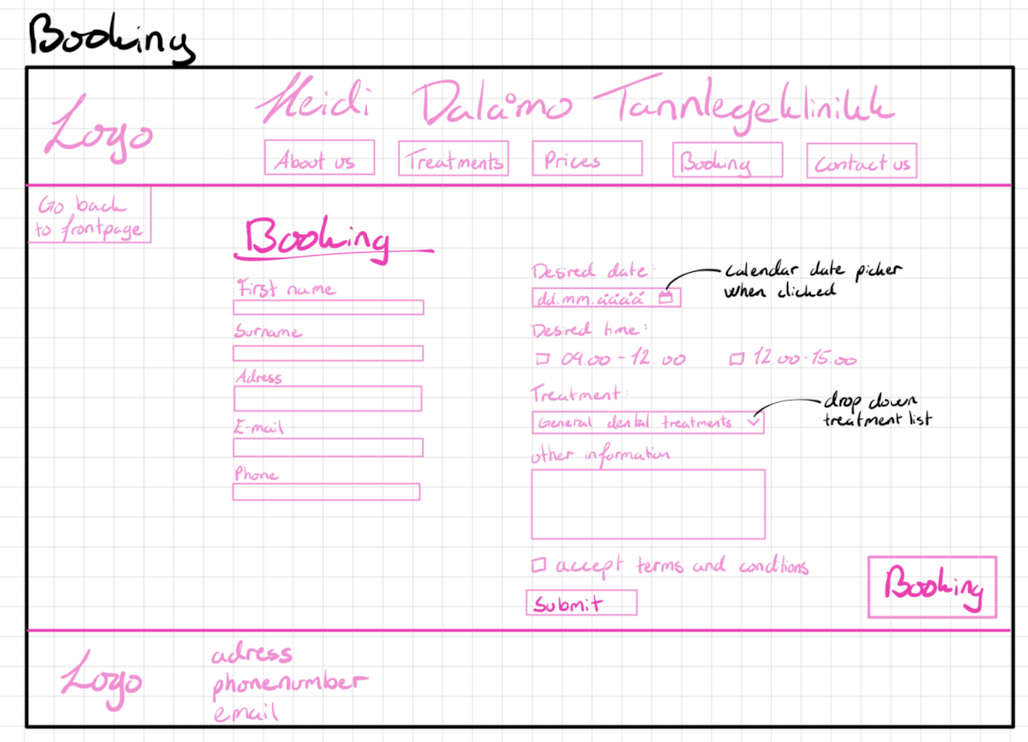 Booking
Logo
Heidi Dalåmo Tannlegeklinikk
About us
Treatments
Prices
Booking
Contact us
Go back
to frontpage
Booking
First name
Surname
Adress
E-mail
Phone
Desired date:
dd.mm.åååå
calendar date picker
when clicked
Desired time:
09.00-12.00
12.00-15.00
Treatment:
General dental treatments
drop down
treatment list
other information
accept terms and conditions
Submit
Booking
Logo
adress
phonenumber
email